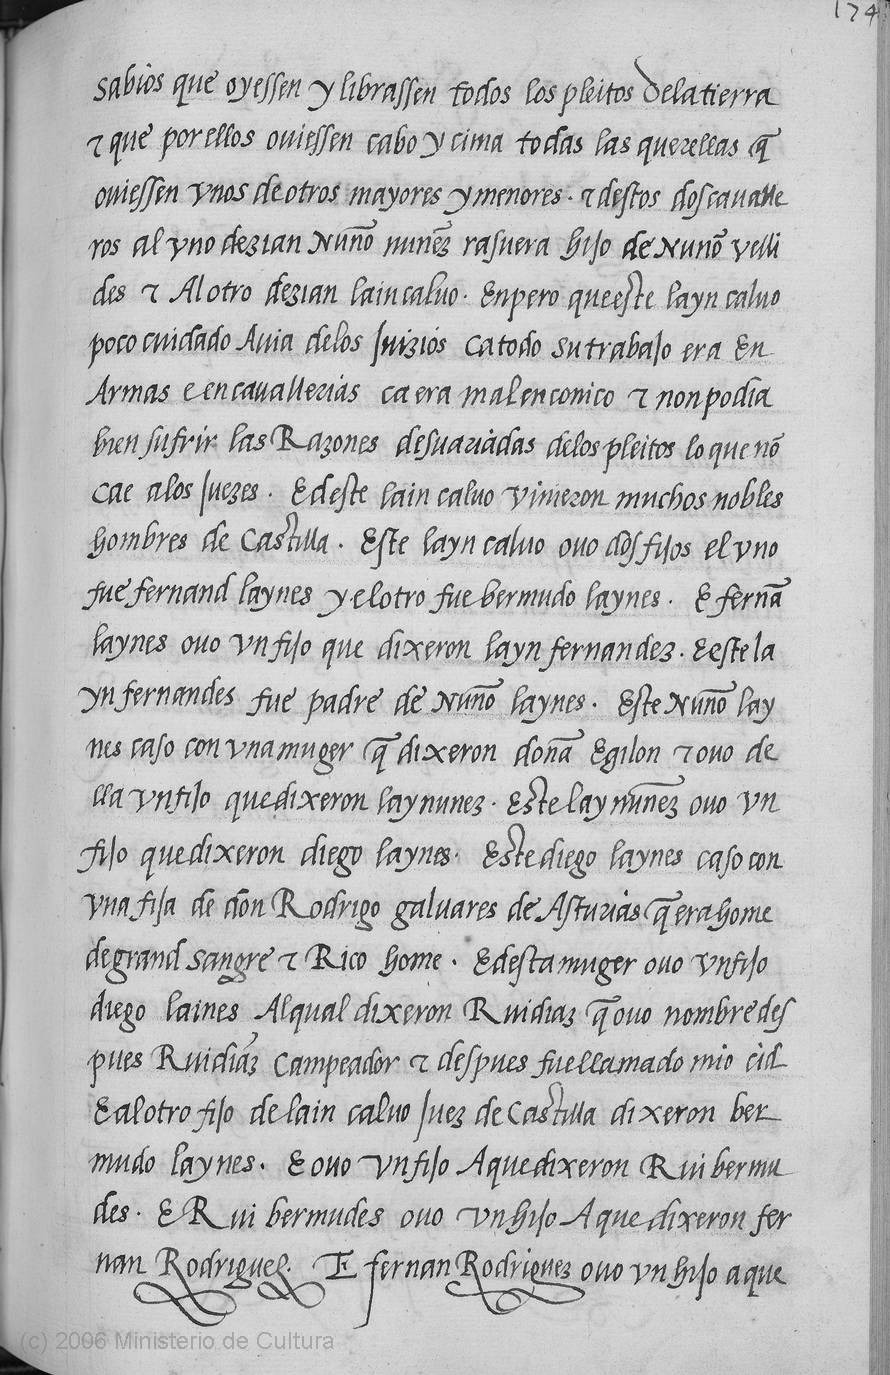 174
sabios que oyessen y librassen todos los pleitos dela tierra
⁊ que por ellos oviessen cabo y cima todas las querellas q̃
oviessen vnos de otros mayores y menores. ⁊ destos dos cavalle
ros al vno dezian Nuño nuñez rasuera hijo de Nuño velli
des ⁊ Al otro dezian lain calvo. Enpero que este layn calvo
poco cuidado Avia delos Juizios ca todo su trabajo era En
Armas e en cavallerias ca era malenconico ⁊ non podia
bien sufrir las Razones desvariadas delos pleitos lo que nõ
cae alos Juezes. E deste lain calvo vinieron muchos nobles
hombres de Castilla. Este layn calvo ovo dos fijos el vno
fue fernand laynes y el otro fue bermudo laynes. E fernã
laynes ovo vn fijo que dixeron layn fernandez. E este la
yn fernandes fue padre de Nuño laynes. Este Nuño lay
nes caso con vna muger q̃ dixeron doña Egilon ⁊ ovo de
lla vn fijo que dixeron lay nunez. Este lay nuñez ovo vn
fijo que dixeron diego laynes. Este diego laynes caso con
vna fija de don Rodrigo galvares de Asturias q̃ era home
de grand sangre ⁊ Rico home. E desta muger ovo vn fijo
diego laines Al qual dixeron Rui diaz q̃ ovo nombre des
pues Rui diaz Campeador ⁊ despues fue llamado mio cid
E al otro fijo de lain calvo Juez de Castilla dixeron ber
mudo laynes. E ovo vn fijo A que dixeron Rui bermu
des. E Rui bermudes ovo vn hijo A que dixeron fer
nan Rodriguez. E fernan Rodriguez ovo vn hijo a que
(c) 2006 Ministerio de Cultura